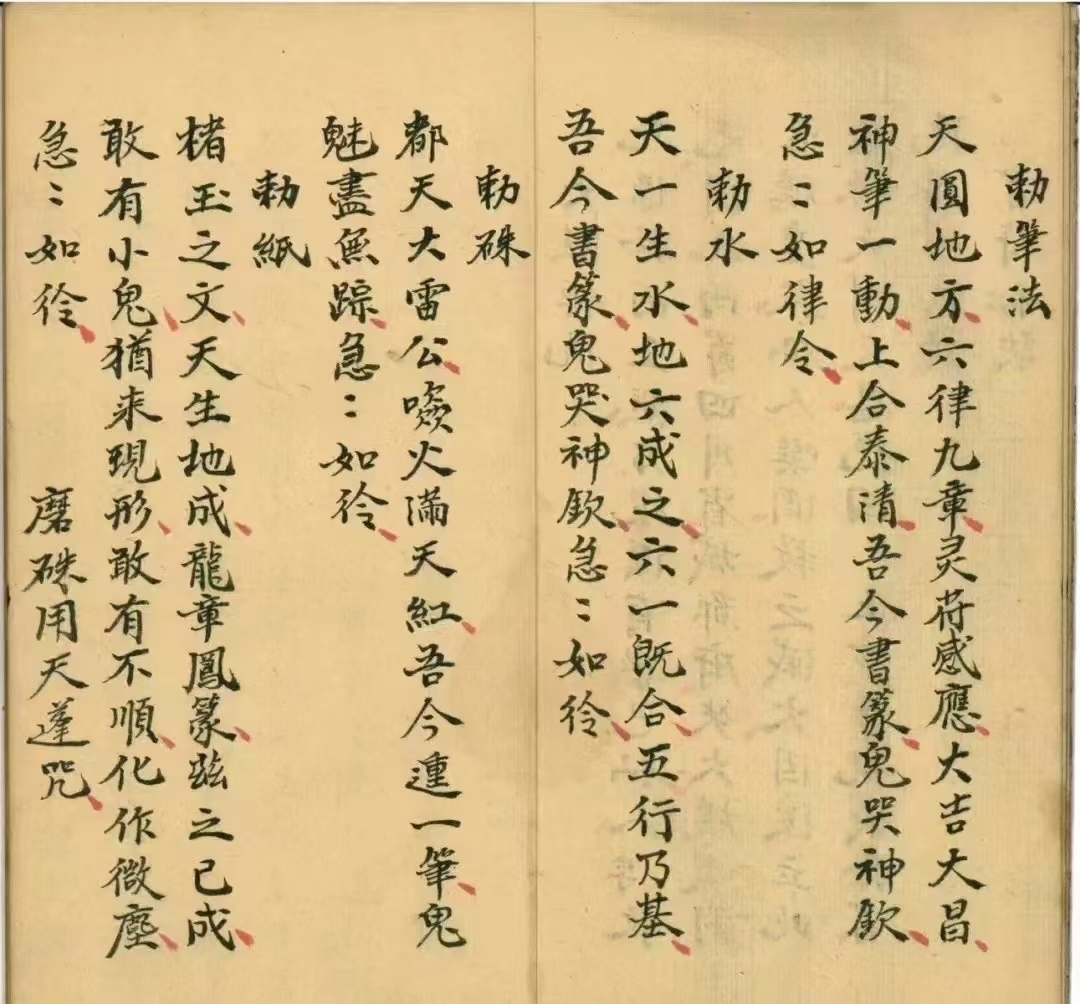 勅筆法
天圓地方六律九章灵苻感應大吉大昌
神筆一動上合泰清吾今書篆鬼哭神欽
急〻如律令
勅水
天一生水地六成之六一既合五行乃基
吾今書篆鬼哭神欽急〻如彾
勅硃
都天大雷公噀火滿天紅吾今運一筆鬼
魅盡無踪急〻如彾
勅紙
楮玉之文天生地成龍章鳳篆兹之已成
敢有小鬼猶来現形敢有不順化作微塵
急〻如彾 磨硃用天蓬咒